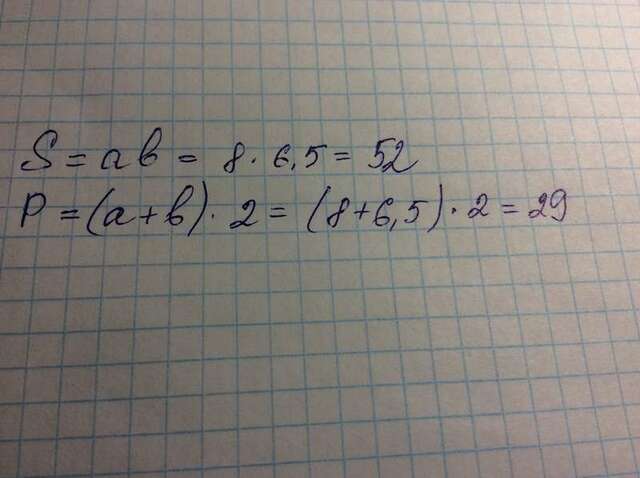 S = ab = 8 · 6,5 = 52
P = (a + b) · 2 = (8 + 6,5) · 2 = 29